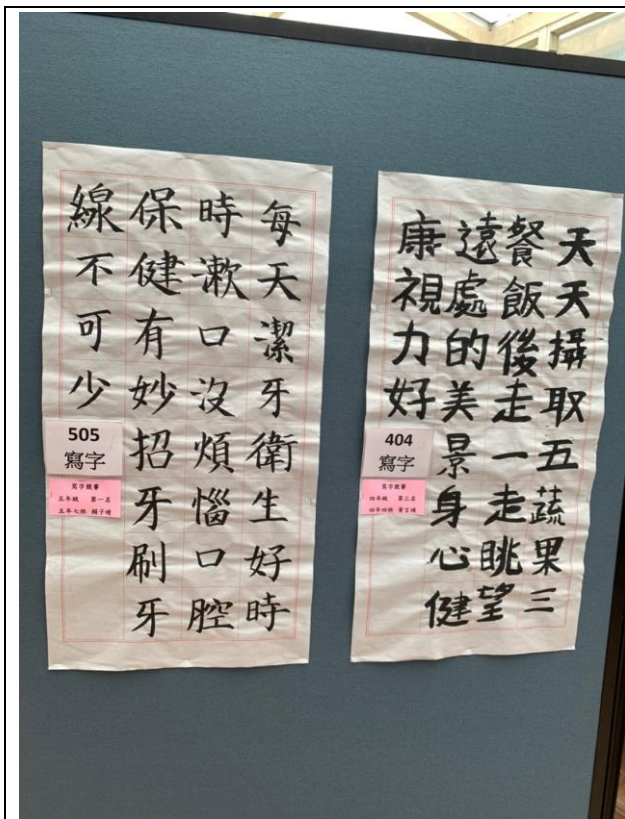 每天潔牙衛生好時
時漱口沒煩惱口腔
保健有妙招牙刷牙
線不可少
505
寫字
寫字競賽
五年級 第一名
五年七班
天天攝取五蔬果三
餐飯後走一走眺望
遠處的美景身心健
康視力好
404
寫字
寫字競賽
四年級 第三名
四年四班